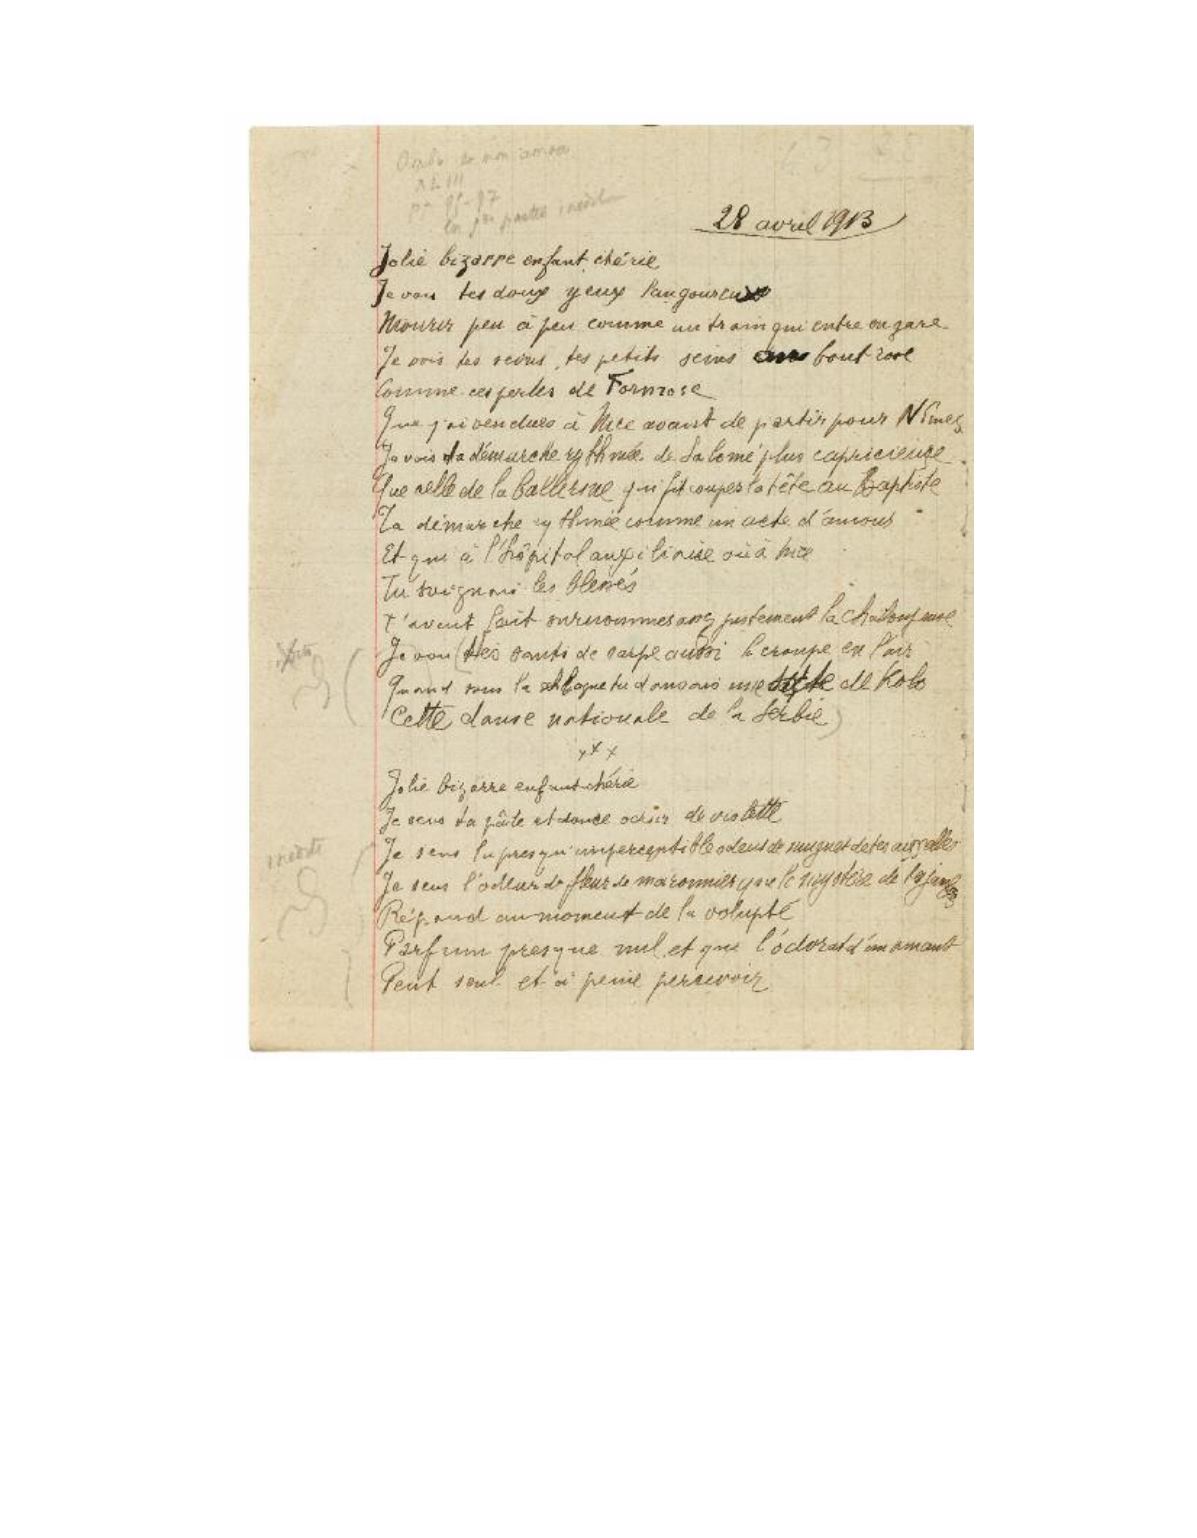 Ombre de mon amour
p. 95-97
en partie inédit
28 avril 1915
Jolie bizarre enfant chérie
Je vois tes doux yeux langoureux
Mourir peu à peu comme un train qui entre en gare
Je vois tes seins, tes petits seins au bout rose
Comme ces perles de Formose
Que j'ai vendues à Nice avant de partir pour Nîmes
Je vois ta démarche rythmée de Salomé plus capricieuse
Que celle de la ballerine qui fit couper la tête au Baptiste
Ta démarche rythmée comme un acte d'amour
Et qui à l'hôpital auxiliaire où à Nice
Tu soignais les blessés
T'avait fait surnommer assez justement la chaloupeuse
Je vois tes sauts de carpe aussi la croupe en l'air
Quand sous la schlague tu dansais une sorte de Kolo
Cette danse nationale de la Serbie
x x x
Jolie bizarre enfant chérie
Je sens ta pâle et douce odeur de violette
Je sens la presqu'imperceptible odeur de muguet de tes aisselles
inédit
Je sens l'odeur de fleur de maronnier que le mystère de tes jambes
Répand au moment de la volupté
Parfum presque nul et que l'odorat d'un amant
Peut seul et à peine percevoir